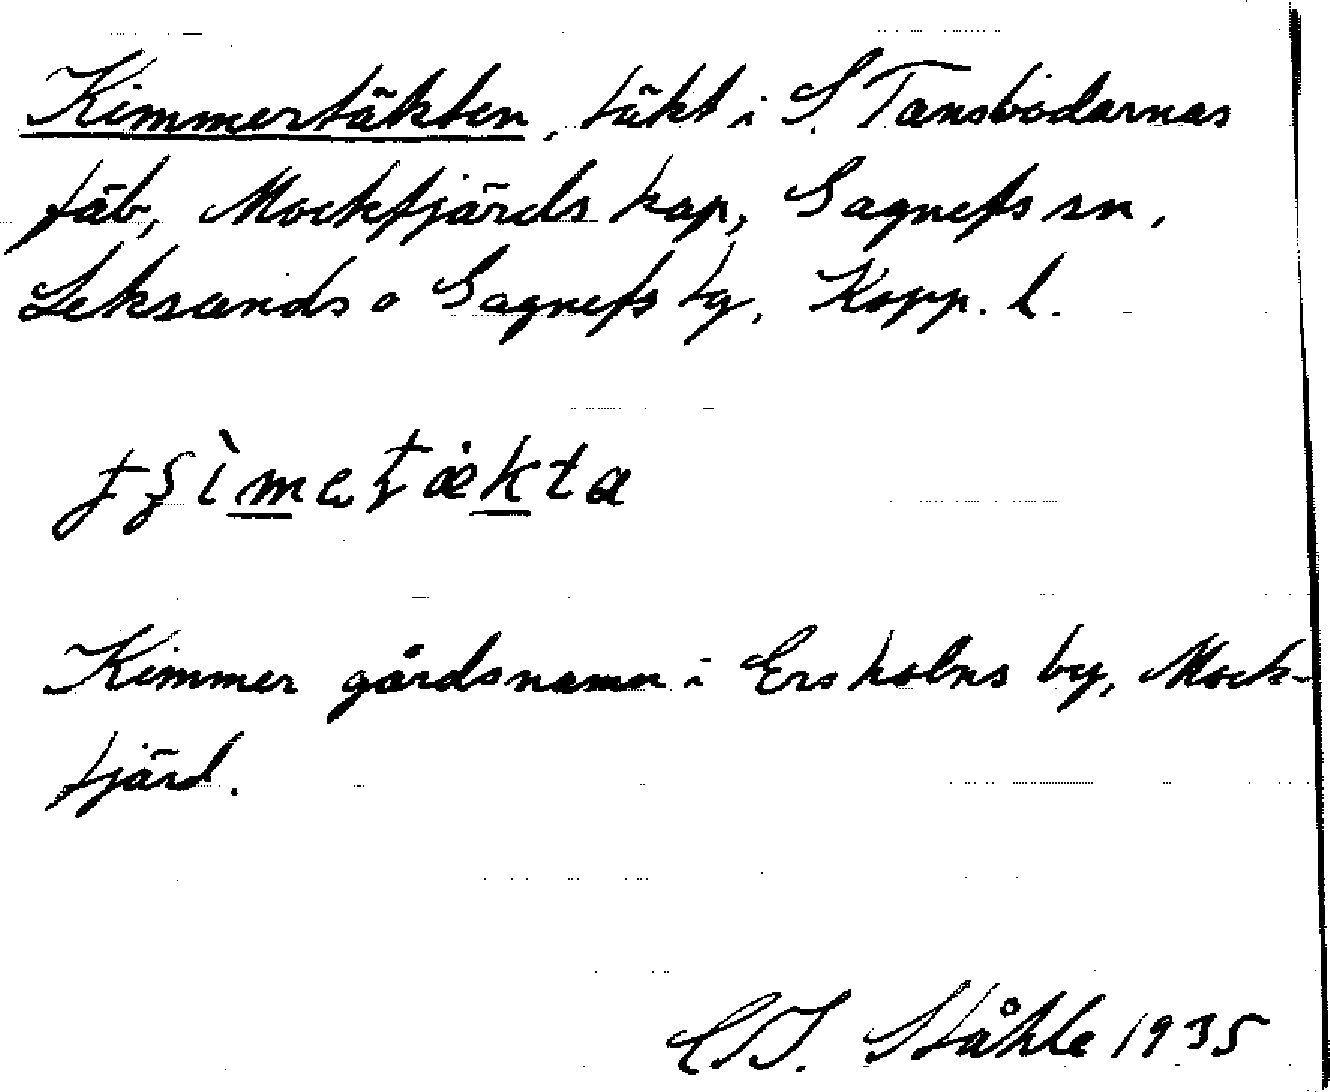 Kimmertäkten, täkt i S. Tansbodarnas
fäb, Mockfjärds kap, Gagnefs sn,
Leksands o Gagnefs tg, Kopp. l.
Kimmer gårdsnamn i Ersholns by, Mock-
fjärd.
C I. Ståhle 1935